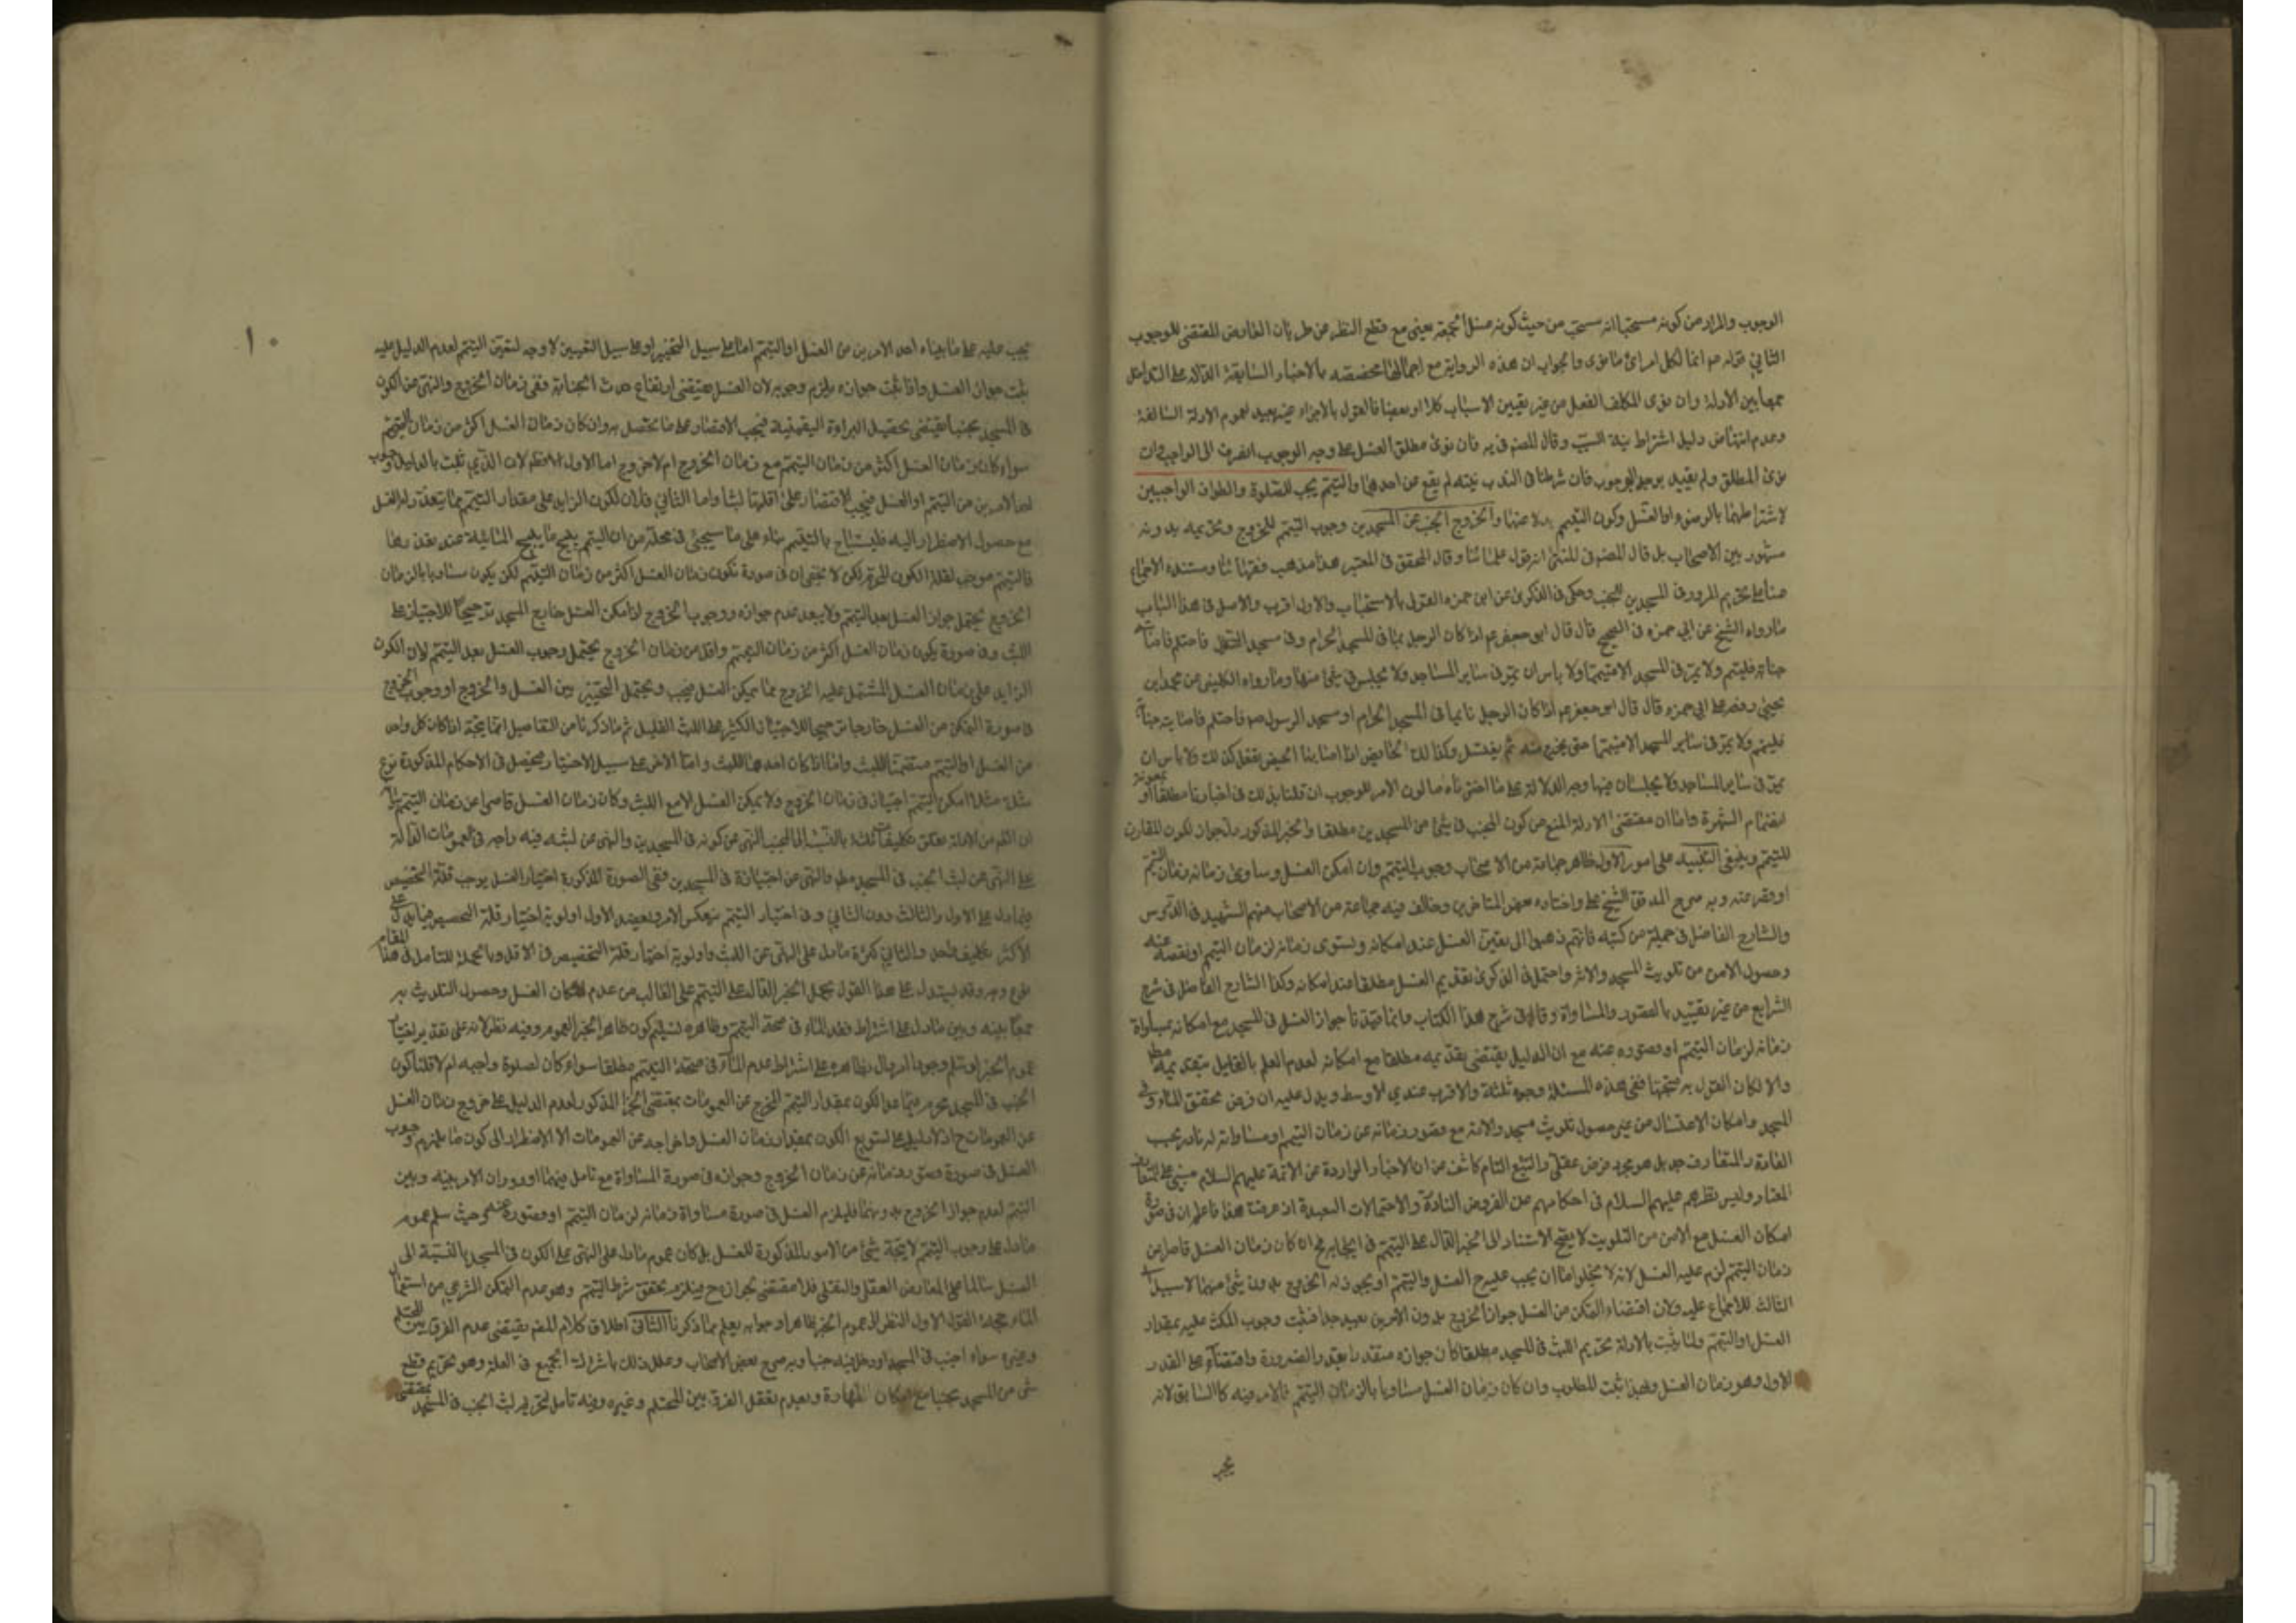 الوجوب والمراد من كونه مستحبا انه مستحب من حيث كونه غسل الجمعة يعني مع قطع النظر عن طريان العارض المقتضى للوجوب
الثاني قوله ص انما لكل امرئ ما نوى والجواب ان هذه الرواية مع اجمالها مخصصه بالاخبار السابقة الدالة على التداخل
جمعا بين الادلة وان نوى المكلف الفعل من غير تعيين الاسباب كلا او بعضا فالقول بالاجزاء غير بعيد لعموم الادلة السالفة
وعدم انتهاض دليل اشتراط نية السبب وقال المصنف في يه فان نوى مطلق الغسل على وجه الوجوب انصرف الى الواجب فان
نوى المطلق ولم يقيد بوجه الوجوب فان شرطنا في الندب نيته لم يقع عن احدهما والتيمم يجب للصلوة والطواف الواجبين
لاشتراطهما بالوضوء او الغسل وكون التيمم بدلا عنهما ولخروج الجنب عن المسجدين وجوب التيمم للخروج وتحريمه بدونه
مشهور بين الاصحاب بل قال المصنف في المنتهى انه قول علمائنا وقال المحقق في المعتبر هذا مذهب فقهائنا ومستنده الاجماع
منا على تحريم المرور في المسجدين للجنب وحكى في الذكرى عن ابن حمزه القول بالاستحباب والاول اقرب والاصل في هذا الباب
ما رواه الشيخ عن ابي حمزه في الصحيح قال قال ابو جعفر ع اذا كان الرجل نائما في المسجد الحرام وفي مسجد الرسول فاحتلم فاصابته
جنابة فليتيمم ولا يمر في المسجد الا متيمما ولا باس ان يمر في ساير المساجد ولا يجلس في شئ منها وما رواه الكليني عن محمد بن
يحيى رفعه عن ابي حمزه قال قال ابو جعفر ع اذا كان الرجل نائما في المسجد الحرام او مسجد الرسول ص فاحتلم فاصابته جنابة
فليتيمم ولا يمر في المسجد الا متيمما حتى يخرج منه ثم يغتسل وكذلك الحايض اذا اصابها الحيض تفعل كذلك ولا باس ان
يمرا في ساير المساجد ولا يجلسان فيها وجه الدلالة على ما اخترناه ما لون الامر للوجوب ان قلنا بذلك في اخبارنا مطلقا او بمعونة
انضمام الشهرة واما ان مقتضى الادلة المنع من كون الجنب في شئ من المسجدين مطلقا والخبر المذكور دل جواز الكون المقارن
للتيمم وينبغي التنبيه على امور الاول ظاهر جماعة من الاصحاب وجوب التيمم وان امكن الغسل وساوى زمانه زمان التيمم
او قصر عنه وبه صرح المدقق الشيخ على واختاره بعض المتاخرين وخالف فيه جماعة من الاصحاب منهم الشهيد في الدروس
والشارح الفاضل في جملة من كتبه فانهم ذهبوا الى تعين الغسل عند امكانه وتساوى زمانه لزمان التيمم او نقصه عنه
وحصول الامن من تلويث المسجد والاثر واحتمل في الذكرى تقديم الغسل مطلقا عند امكانه وكذا الشارح الفاضل في شرح
الشرايع من غير تقييد بالقصور والمساواة وقال في شرح هذا الكتاب وانما قيدنا جواز الغسل في المسجد مع امكانه بمساواة
زمانه لزمان التيمم او قصوره عنه مع ان الدليل يقتضى تقديمه مطلقا مع امكانه لعدم العلم بالقايل بتقديمه مطلقا
والا لكان القول به متجها ففى هذه المسئلة وجوه ثلثة والاقرب عندي الاوسط ويدل عليه ان فرض تحقق الماء في
المسجد وامكان الاغتسال من غير حصول تلويث مسجد والاته مع قصور زمانه عن زمان التيمم او مساواته له نادر بحسب
العادة والمتعارف جدا بل هو مجرد فرض عقلي والتتبع التام كاشف عن ان الاخبار الواردة عن الائمة عليهم السلام مبني على المتعارف
المعتاد وليس نظرهم عليهم السلام في احكامهم عن الفروض النادرة والاحتمالات البعيدة اذ عرفت هذا فاعلم ان في صورة
امكان الغسل مع الامن من التلويث لا يصح الاستناد الى الخبر الدال على التيمم في ايجابه ح ان كان زمان الغسل قاصرا عن
زمان التيمم لزم عليه الغسل لانه لا يخلو اما ان يجب عليه ح الغسل والتيمم او يجوز له الخروج بدون شئ منهما لا سبيل الى
الثالث للاجماع عليه ولان اقتضاء التمكن من الغسل جواز الخروج بدون الامرين بعيد جدا فثبت وجوب المكث عليه بمقدار
الغسل او التيمم ولما ثبت بالادلة تحريم اللبث في المسجد مطلقا كان جوازه متقدرا بقدر الضرورة واقتصارا على القدر
الاول وهو زمان الغسل وبهذا ثبت المطلوب وان كان زمان الغسل مساويا بالزمان التيمم فالامر فيه كالسابق لانه
يجب
١٠
يجب عليه على ما بيناه احد الامرين من الغسل او التيمم اما على سبيل التخيير او على سبيل التعيين لا وجه لتعين التيمم لعدم الدليل عليه
ثبت جواز الغسل واذا ثبت جوازه يلزم وجوبه لان الغسل يقتضى ارتفاع حدث الجنابة ففى زمان الخروج والنهى عن الكون
في المسجد جنبا يقتضى تحصيل البراءة اليقينية فيجب الاقتصار على ما يحصل به وان كان زمان الغسل اكثر من زمان التيمم
سواء كان زمان الغسل اكثر من زمان التيمم مع زمان الخروج ام لا خروج اما الاول فظ لان الذي ثبت بالدليل وجوب
احد الامرين من التيمم او الغسل فيجب الاقتصار على اقلهما لبثا واما الثاني فلان لكون الزايد على مقدار التيمم مما يتعذر له الغسل
مع حصول الاضطرار اليه فليستباح بالتيمم بناء على ما سيجئ في محله من ان التيمم يبيح ما يبيح المائية عند تعذرها
فالتيمم موجب لقلة الكون المحرم لكن لا يخفى ان في صورة تكون زمان الغسل اكثر من زمان التيمم لكن يكون مساويا بالزمان
الخروج يحتمل جواز الغسل بعد التيمم ولا يبعد عدم جوازه ووجوب الخروج اذا امكن الغسل خارج المسجد ترجيحا للاجتياز على
اللبث وفي صورة يكون زمان الغسل اكثر من زمان التيمم واقل من زمان الخروج يحتمل وجوب الغسل بعد التيمم لان الكون
الزايد على زمان الغسل المشتمل عليه الخروج مما يمكن الغسل فيجب ويحتمل التخيير بين الغسل والخروج او وجوب الخروج
في صورة التمكن من الغسل خارجا ترجيحا للاجتياز الكثير على اللبث القليل ثم ما ذكرنا من التفاصيل انما يتجه اذا كان كل واحد
من الغسل او التيمم متضمنا للبث واما اذا كان احدهما اللبث واما الاخر على سبيل الاختيار فيحصل في الاحكام المذكورة نوع
مثلا امكن التيمم اجتياز في زمان الخروج ولا يمكن الغسل الا مع اللبث وكان زمان الغسل قاصرا عن زمان التيمم
بالنسبة الى الجنب النهى عن كونه في المسجدين والنهى عن لبثه فيه واجه في العمومات الدالة
على النهى عن لبث الجنب في المسجد مطلقا والنهى عن اجتيازه في المسجدين ففى الصورة المذكورة اختيار الغسل يوجب قلة التخصيص
فيما دل على الاول والثالث دون الثاني وفي اختيار التيمم ينعكس الامر ويعضد الاول اولوية اختيار قلة التخصيص فيما يدل على
الاكثر والثاني كثرة ما دل على النهى عن اللبث واولوية اختيار قلة التخصيص في الاقل وبالجملة للتامل في هذا المقام
نوع وجه وقد يستدل على هذا القول بحمل الخبر الدال على التيمم على الغالب من عدم امكان الغسل وحصول التلويث به
جمعا بينه وبين ما دل على اشتراط فقد الماء في صحة التيمم وظاهره تسليم كون ظاهر الخبر العموم وفيه نظر لانه على تقدير
عموم الخبر على اشتراط عدم الماء في صحة التيمم مطلقا سواء كان لصلوة واجبه ام لا قلنا كون
الجنب في المسجد محرم فيما عدا الكون بمقدار التيمم المخرج عن العمومات بمقتضى الخبر المذكور لعدم الدليل على خروج زمان الغسل
عن العمومات ح اذ لا دليل على تسويغ الكون بمقدار زمان الغسل واخراجه عن العمومات الا الاضطرار الى كون ما يلزم وجوب
الغسل في صورة قصور زمانه عن زمان الخروج وجوازه في صورة المساواة مع تامل فيهما او دوران الامر بينه وبين
التيمم لعدم جواز الخروج بدونهما فليلزم الغسل في صورة مساواة زمانه لزمان التيمم او قصوره عنه وحيث سلم عموم
ما دل على وجوب التيمم لا يتجه شئ من الامور المذكورة للغسل بل كان عموم ما دل على النهى على الكون في المسجد بالنسبة الى
الغسل سالما على المعارض العقلى والنقلى فلا مقتضى لجوازه ح فيلزم تحقق شرط التيمم وهو عدم التمكن الشرعي من استعمال
الماء وحجة القول الاول النظر الى عموم الخبر ظاهرا وجوابه يعلم مما ذكرنا الثاني اطلاق كلام المصنف يقتضى عدم الفرق بين المحتلم
وغيره سواء اجنب في المسجد او دخل فيه جنبا وبه صرح بعض الاصحاب وعلل ذلك باشتراك الجميع في العلة وهو تحريم قطع
شئ من المسجد جنبا مع امكان الطهارة وبعدم تعقل الفرق بين المحتلم وغيره وفيه تامل لتحريم لبث الجنب في المسجد بمقتضى